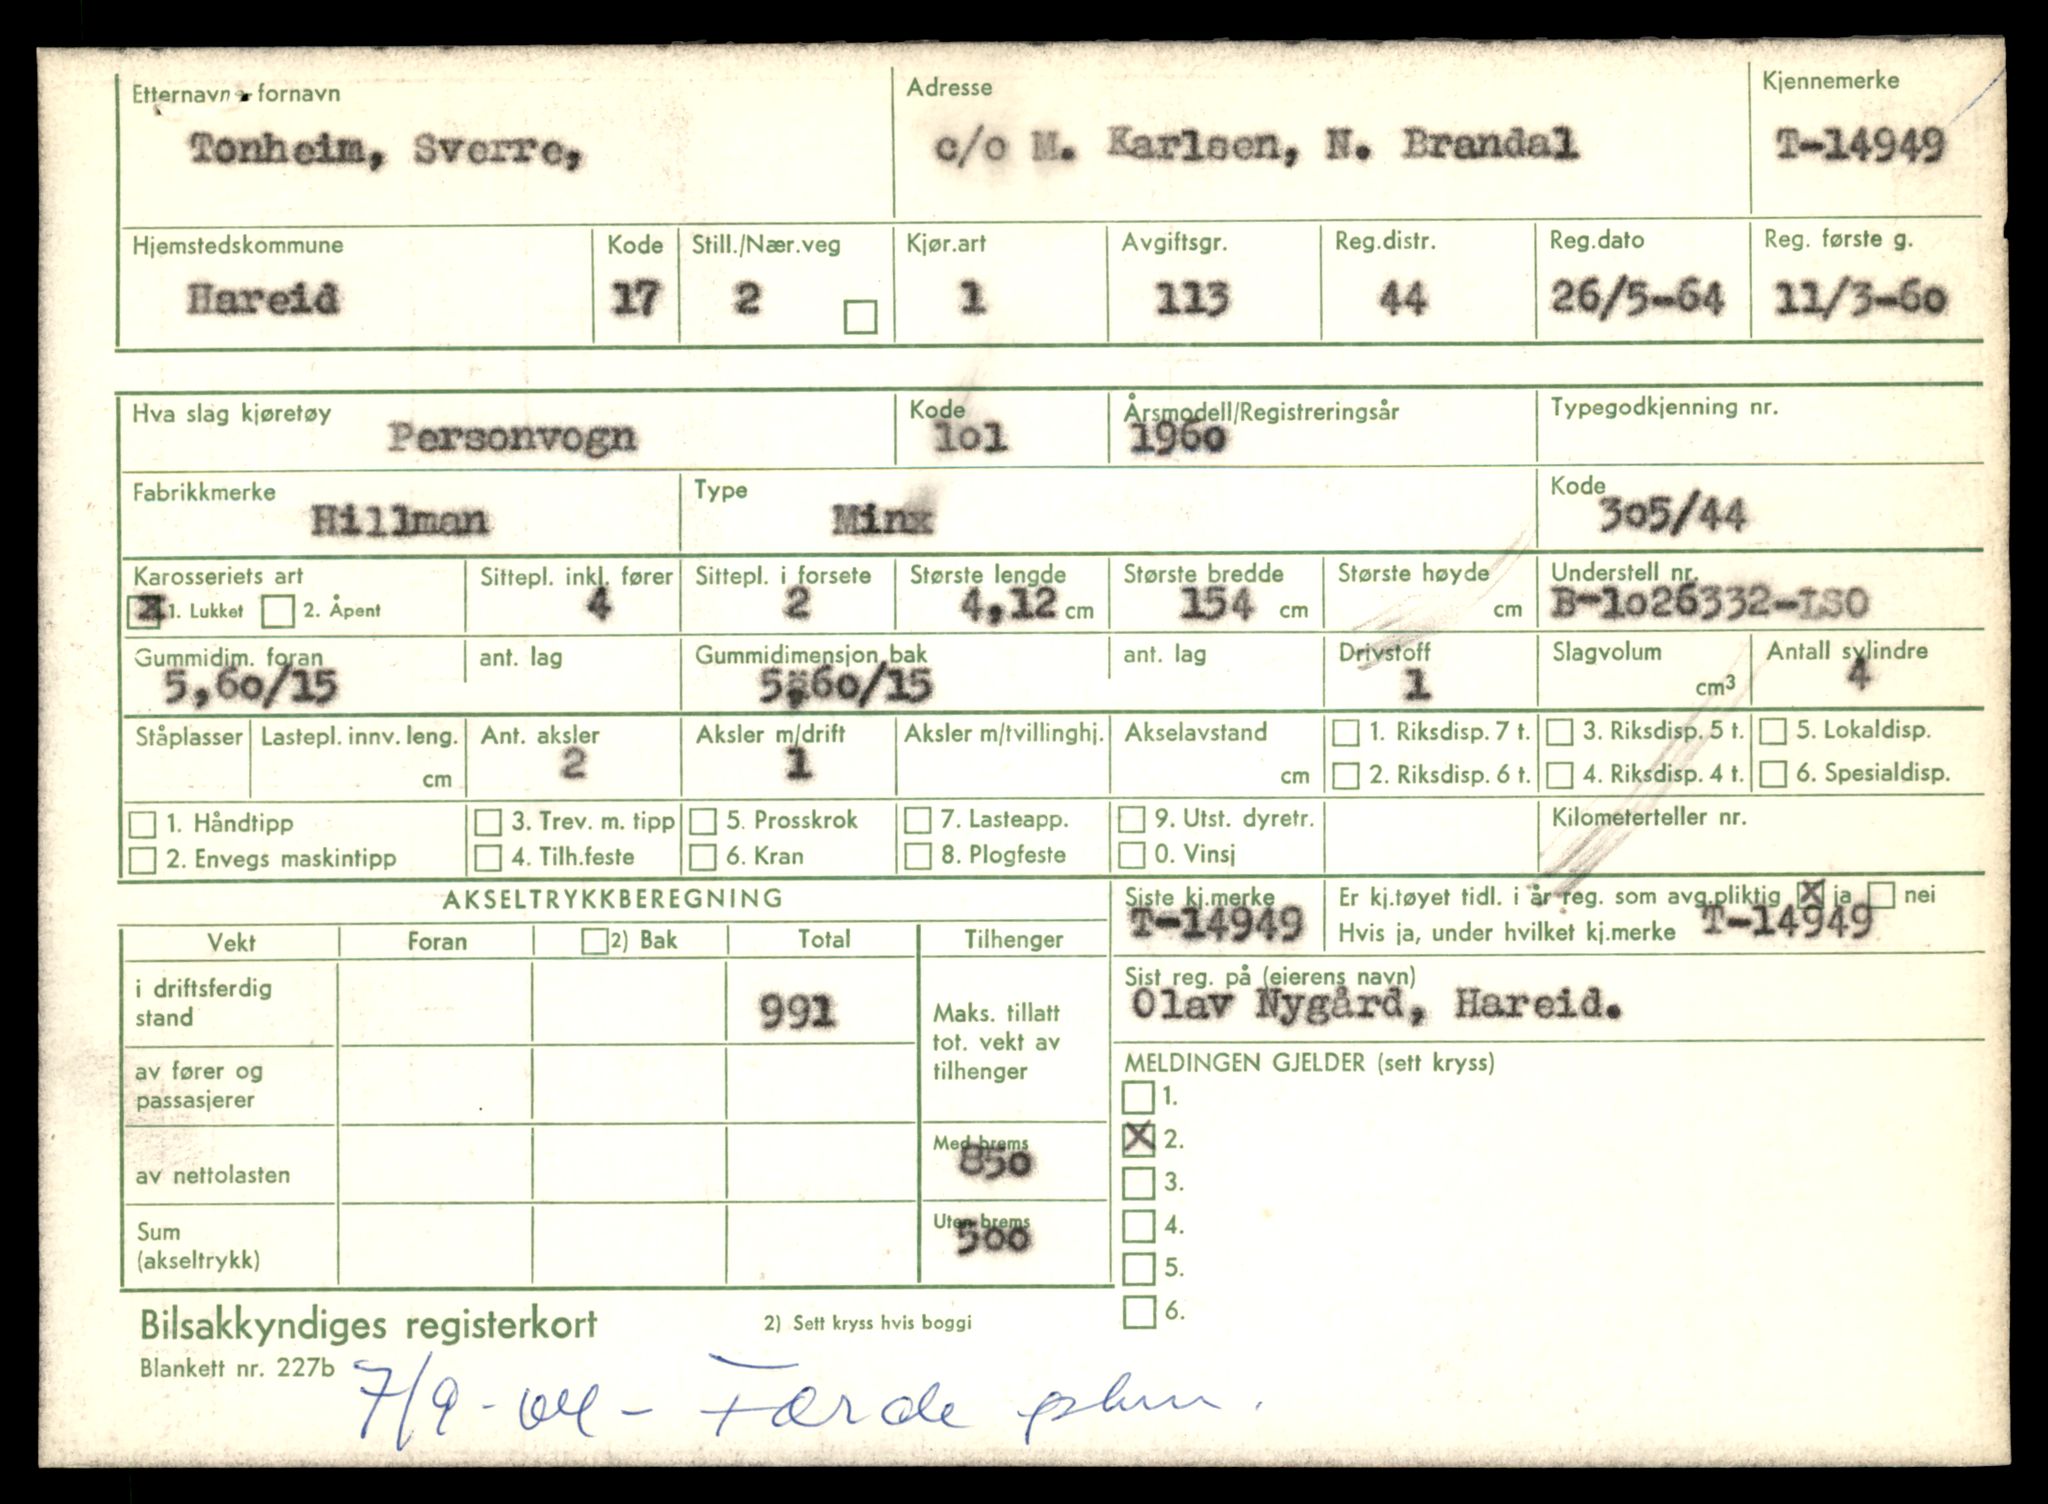 Etternavn - fornavn Adresse Kjennemerke
Tonheim, Sverre, c/o M. Karlsen, N. Brandal T-14949
Hjemstedskommune Kode Still./Nær.veg Kjør.art Avgiftsgr. Reg.distr. Reg.dato Reg. første g.
Hareid 17 2 1 113 44 26/5-64 11/3-60
Hva slag kjøretøy Kode Årsmodell/Registreringsår Typegodkjenning nr.
Personvogn 101 1960
Fabrikkmerke Type Kode
Hillman Minx 305/44
Karosseriets art Sittepl. inkl. fører Sittepl. i forsete Største lengde Største bredde Største høyde Understell nr.
X 1. Lukket 2. Åpent 4 2 4,12 cm 154 cm cm B-1026332-LSO
Gummidim. foran ant. lag Gummidimensjon bak ant. lag Drivstoff Slagvolum Antall sylindre
5,60/15 5,60/15 1 cm3 4
Ståplasser Lastepl. innv. leng. Ant. aksler Aksler m/drift Aksler m/tvillinghj. Akselavstand 1. Riksdisp. 7 t. 3. Riksdisp. 5 t. 5. Lokaldisp.
cm 2 1 cm 2. Riksdisp. 6 t. 4. Riksdisp. 4 t. 6. Spesialdisp.
1. Håndtipp 3. Trev. m. tipp 5. Prosskrok 7. Lasteapp. 9. Utst. dyretr. Kilometerteller nr.
2. Envegs maskintipp 4. Tilh.feste 6. Kran 8. Plogfeste 0. Vinsj
AKSELTRYKKBEREGNING Siste kj.merke Er kj.tøyet tidl. i år reg. som avg.pliktig X ja nei
T-14949 Hvis ja, under hvilket kj.merke T-14949
Vekt Foran 2) Bak Total Tilhenger
Sist reg. på (eierens navn)
Olav Nygård, Hareid.
i driftsferdig
stand 991 Maks. tillatt
tot. vekt av
tilhenger
av fører og
passasjerer
MELDINGEN GJELDER (sett kryss)
1.
X 2.
3.
4.
5.
6.
av nettolasten Med brems
850
Sum
(akseltrykk) Uten brems
500
Bilsakkyndiges registerkort 2) Sett kryss hvis boggi
Blankett nr. 227b
7/9-64 - Førde